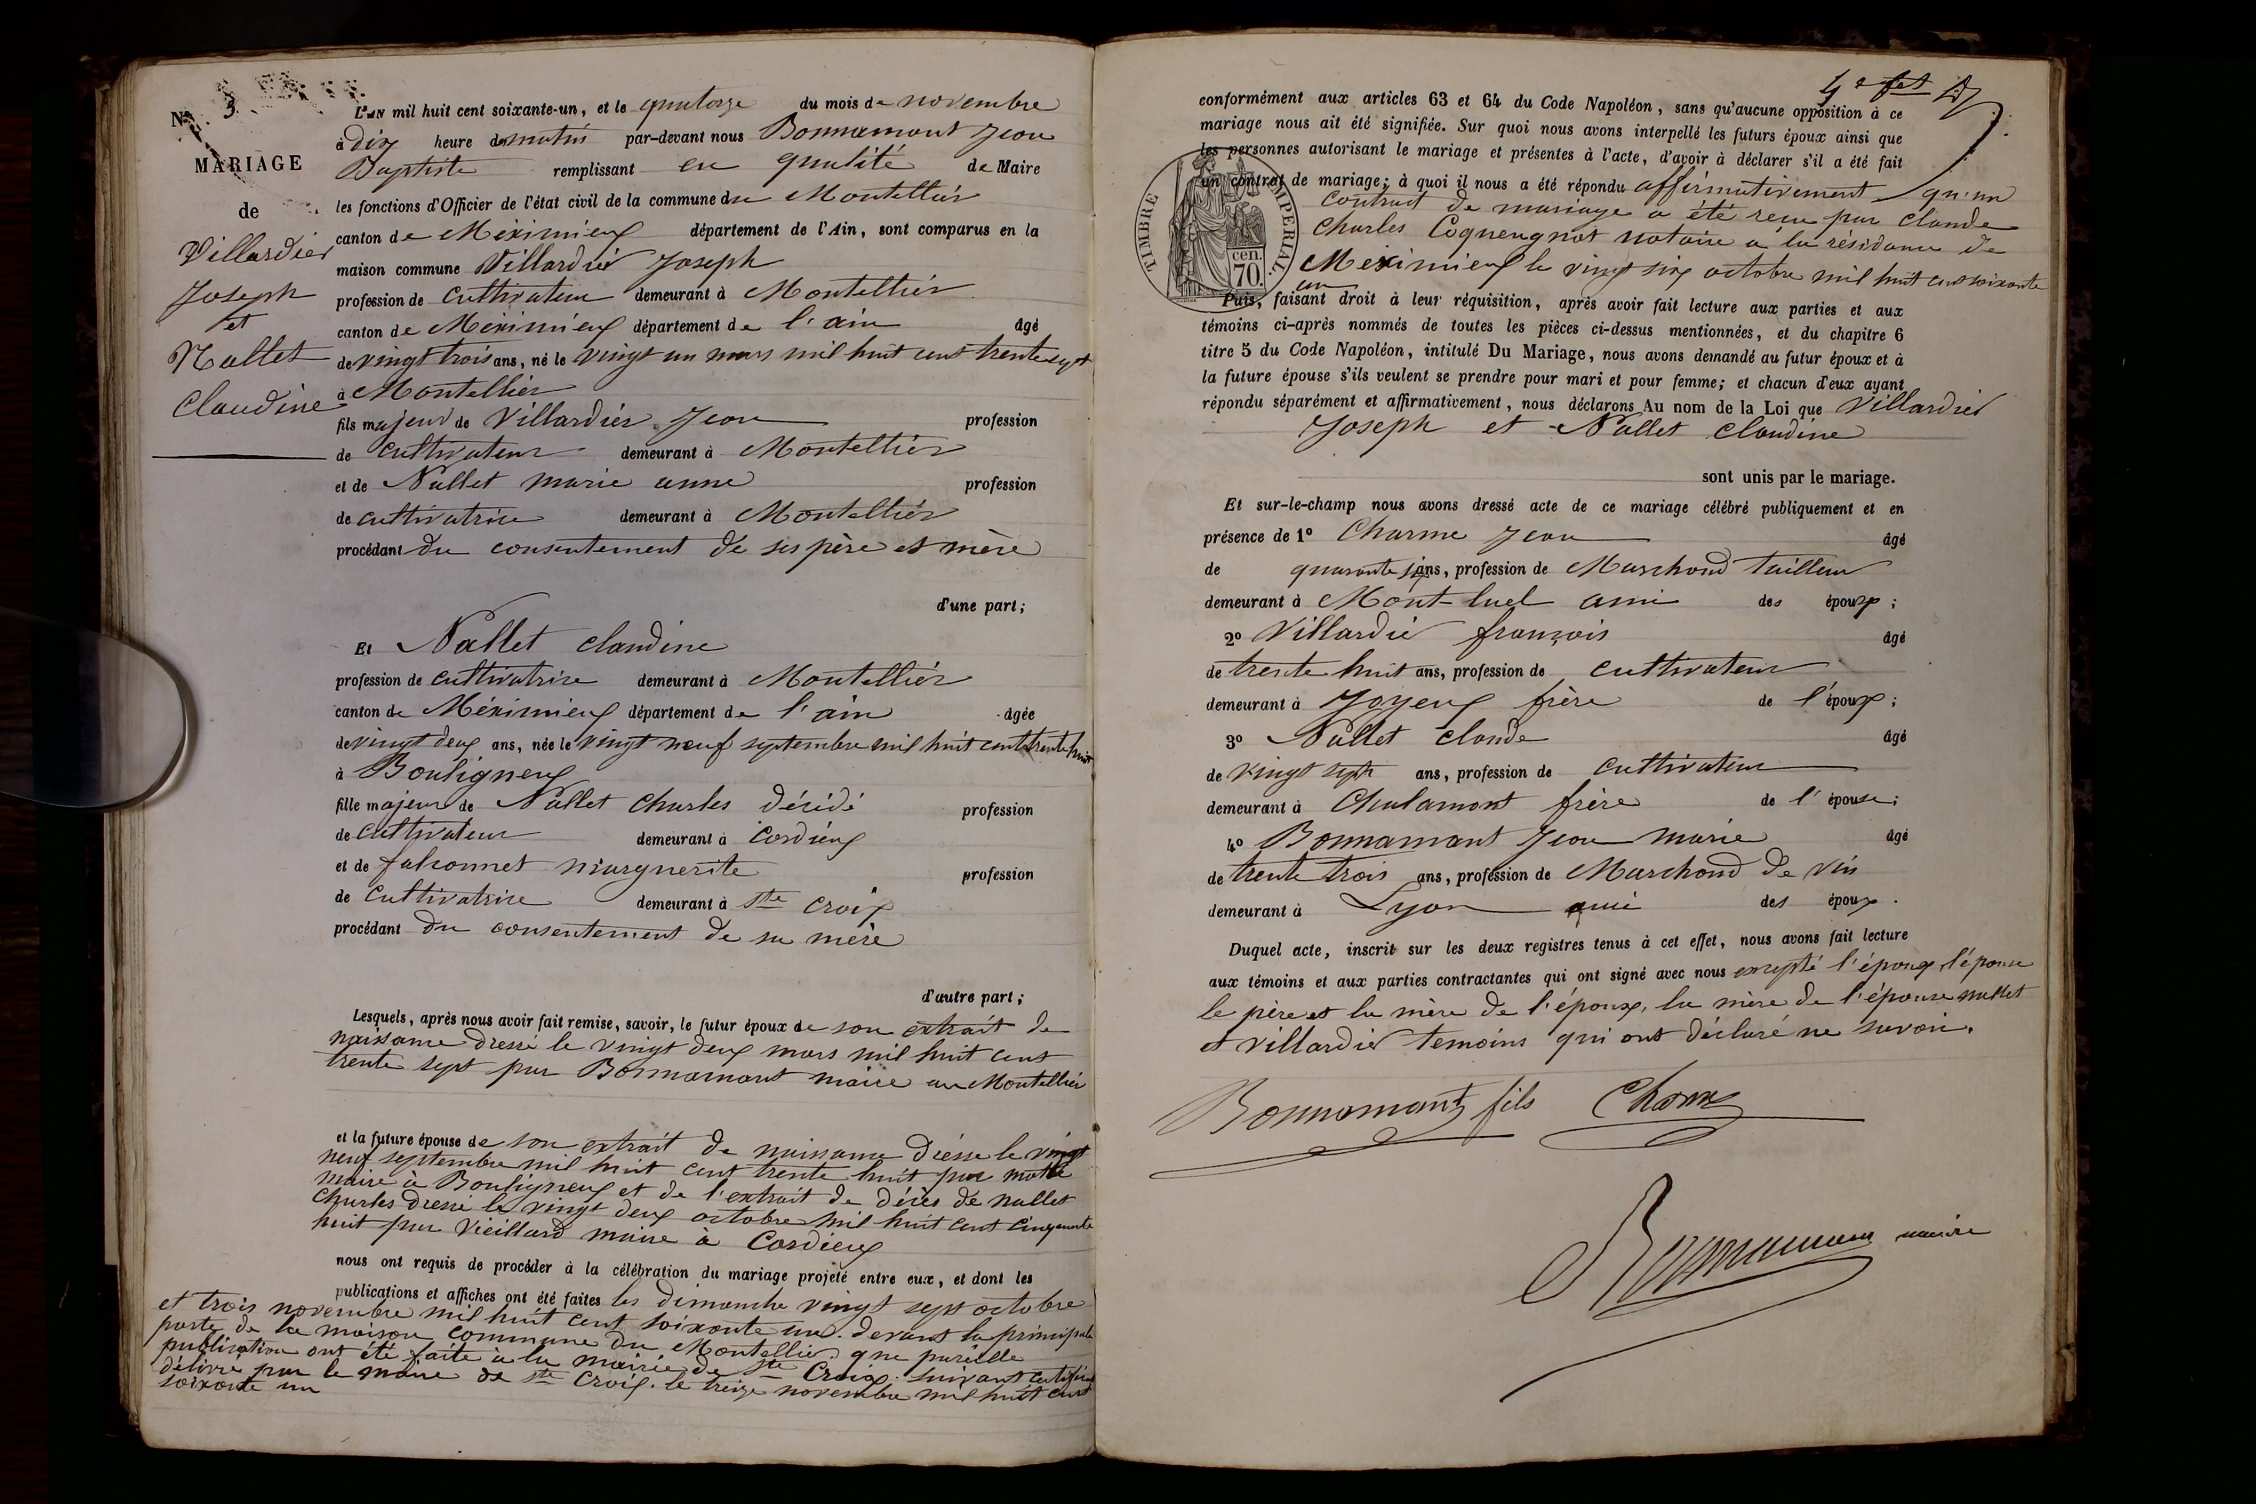 N° 3.
MARIAGE
de
Villardier
Joseph
et
Nallet
Claudine
L'AN mil huit cent soixante-un, et le quatorze du mois de novembre
à dix heure du matin par-devant nous Bonnamant Jean
Baptiste remplissant en qualité de Maire
les fonctions d'Officier de l'état civil de la commune du Montellier
canton de Méximieux département de l'Ain, sont comparus en la
maison commune Villardier Joseph
profession de cultivateur demeurant à Montellier
canton de Méximieux département de l'ain âgé
de vingt trois ans, né le vingt un mars mil huit cent trente sept
à Montellier
fils majeur de Villardier Jean profession
de cultivateur demeurant à Montellier
et de Nallet marie anne profession
de cultivatrice demeurant à Montellier
procédant du consentement de ses père et mère
d'une part;
Et Nallet claudine
profession de cultivatrice demeurant à Montellier
canton de Méximieux département de l'ain âgée
de vingt deux ans, née le vingt neuf septembre mil huit cent trente huit
à Bouligneux
fille majeure de Nallet charles décédé profession
de cultivateur demeurant à cordieux
et de falconnet marguerite profession
de cultivatrice demeurant à ste croix
procédant du consentement de sa mère
d'autre part;
Lesquels, après nous avoir fait remise, savoir, le futur époux de son extrait de
naissance dressé le vingt deux mars mil huit cent
trente sept par Bonnamant maire au Montellier
et la future épouse de son extrait de naissance dresse le vingt
neuf septembre mil huit cent trente huit par
maire à Bouligneux et de l'extrait de décès de nallet
charles dressé le vingt deux octobre mil huit cent cinquante
huit par Vieillard maire à Cordieux
nous ont requis de procéder à la célébration du mariage projeté entre eux, et dont les
publications et affiches ont été faites les dimanche vingt sept octobre
et trois novembre mil huit cent soixante un. devant la principale
porte de la maison commune du Montellier. que pareille
publication ont été faite à la mairie de ste Croix. suivant certificat
délivré par le maire de ste Croix. le treize novembre mil huit cent
soixante un
conformément aux articles 63 et 64 du Code Napoléon, sans qu'aucune opposition à ce
mariage nous ait été signifiée. Sur quoi nous avons interpellé les futurs époux ainsi que
les personnes autorisant le mariage et présentes à l'acte, d'avoir à déclarer s'il a été fait
un contrat de mariage; à quoi il nous a été répondu affirmativement qu'un
contrat de mariage a été reçu par claude
Charles Coquengniot notaire à la résidance de
Meximieux le vingt six octobre mil huit cent soixante
un
TIMBRE IMPERIAL.
cen.
70.
Puis, faisant droit à leur réquisition, après avoir fait lecture aux parties et aux
témoins ci-après nommés de toutes les pièces ci-dessus mentionnées, et du chapitre 6
titre 5 du Code Napoléon, intitulé Du Mariage, nous avons demandé au futur époux et à
la future épouse s'ils veulent se prendre pour mari et pour femme; et chacun d'eux ayant
répondu séparément et affirmativement, nous déclarons Au nom de la Loi que Villardier
Joseph et Nallet claudine
sont unis par le mariage.
Et sur-le-champ nous avons dressé acte de ce mariage célébré publiquement et en
présence de 1° Charme Jean âgé
de quarante six ans, profession de Marchand tailleur
demeurant à Mont-luel ami des époux;
2° Villardier françois âgé
de trente huit ans, profession de cultivateur
demeurant à Joyeux frère de l'époux;
3° Nallet claude âgé
de vingt sept ans, profession de cultivateur
demeurant à Chalamont frère de l'épouse;
4° Bonnamant Jean marie âgé
de trente trois ans, profession de Marchand de vin
demeurant à Lyon ami des époux.
Duquel acte, inscrit sur les deux registres tenus à cet effet, nous avons fait lecture
aux témoins et aux parties contractantes qui ont signé avec nous excepté l'époux, l'épouse
le père et la mère de l'époux, la mère de l'épouse nallet
et villardier temoins qui ont déclaré ne savoir.
Bonnamant fils Charme
Bonnamant maire